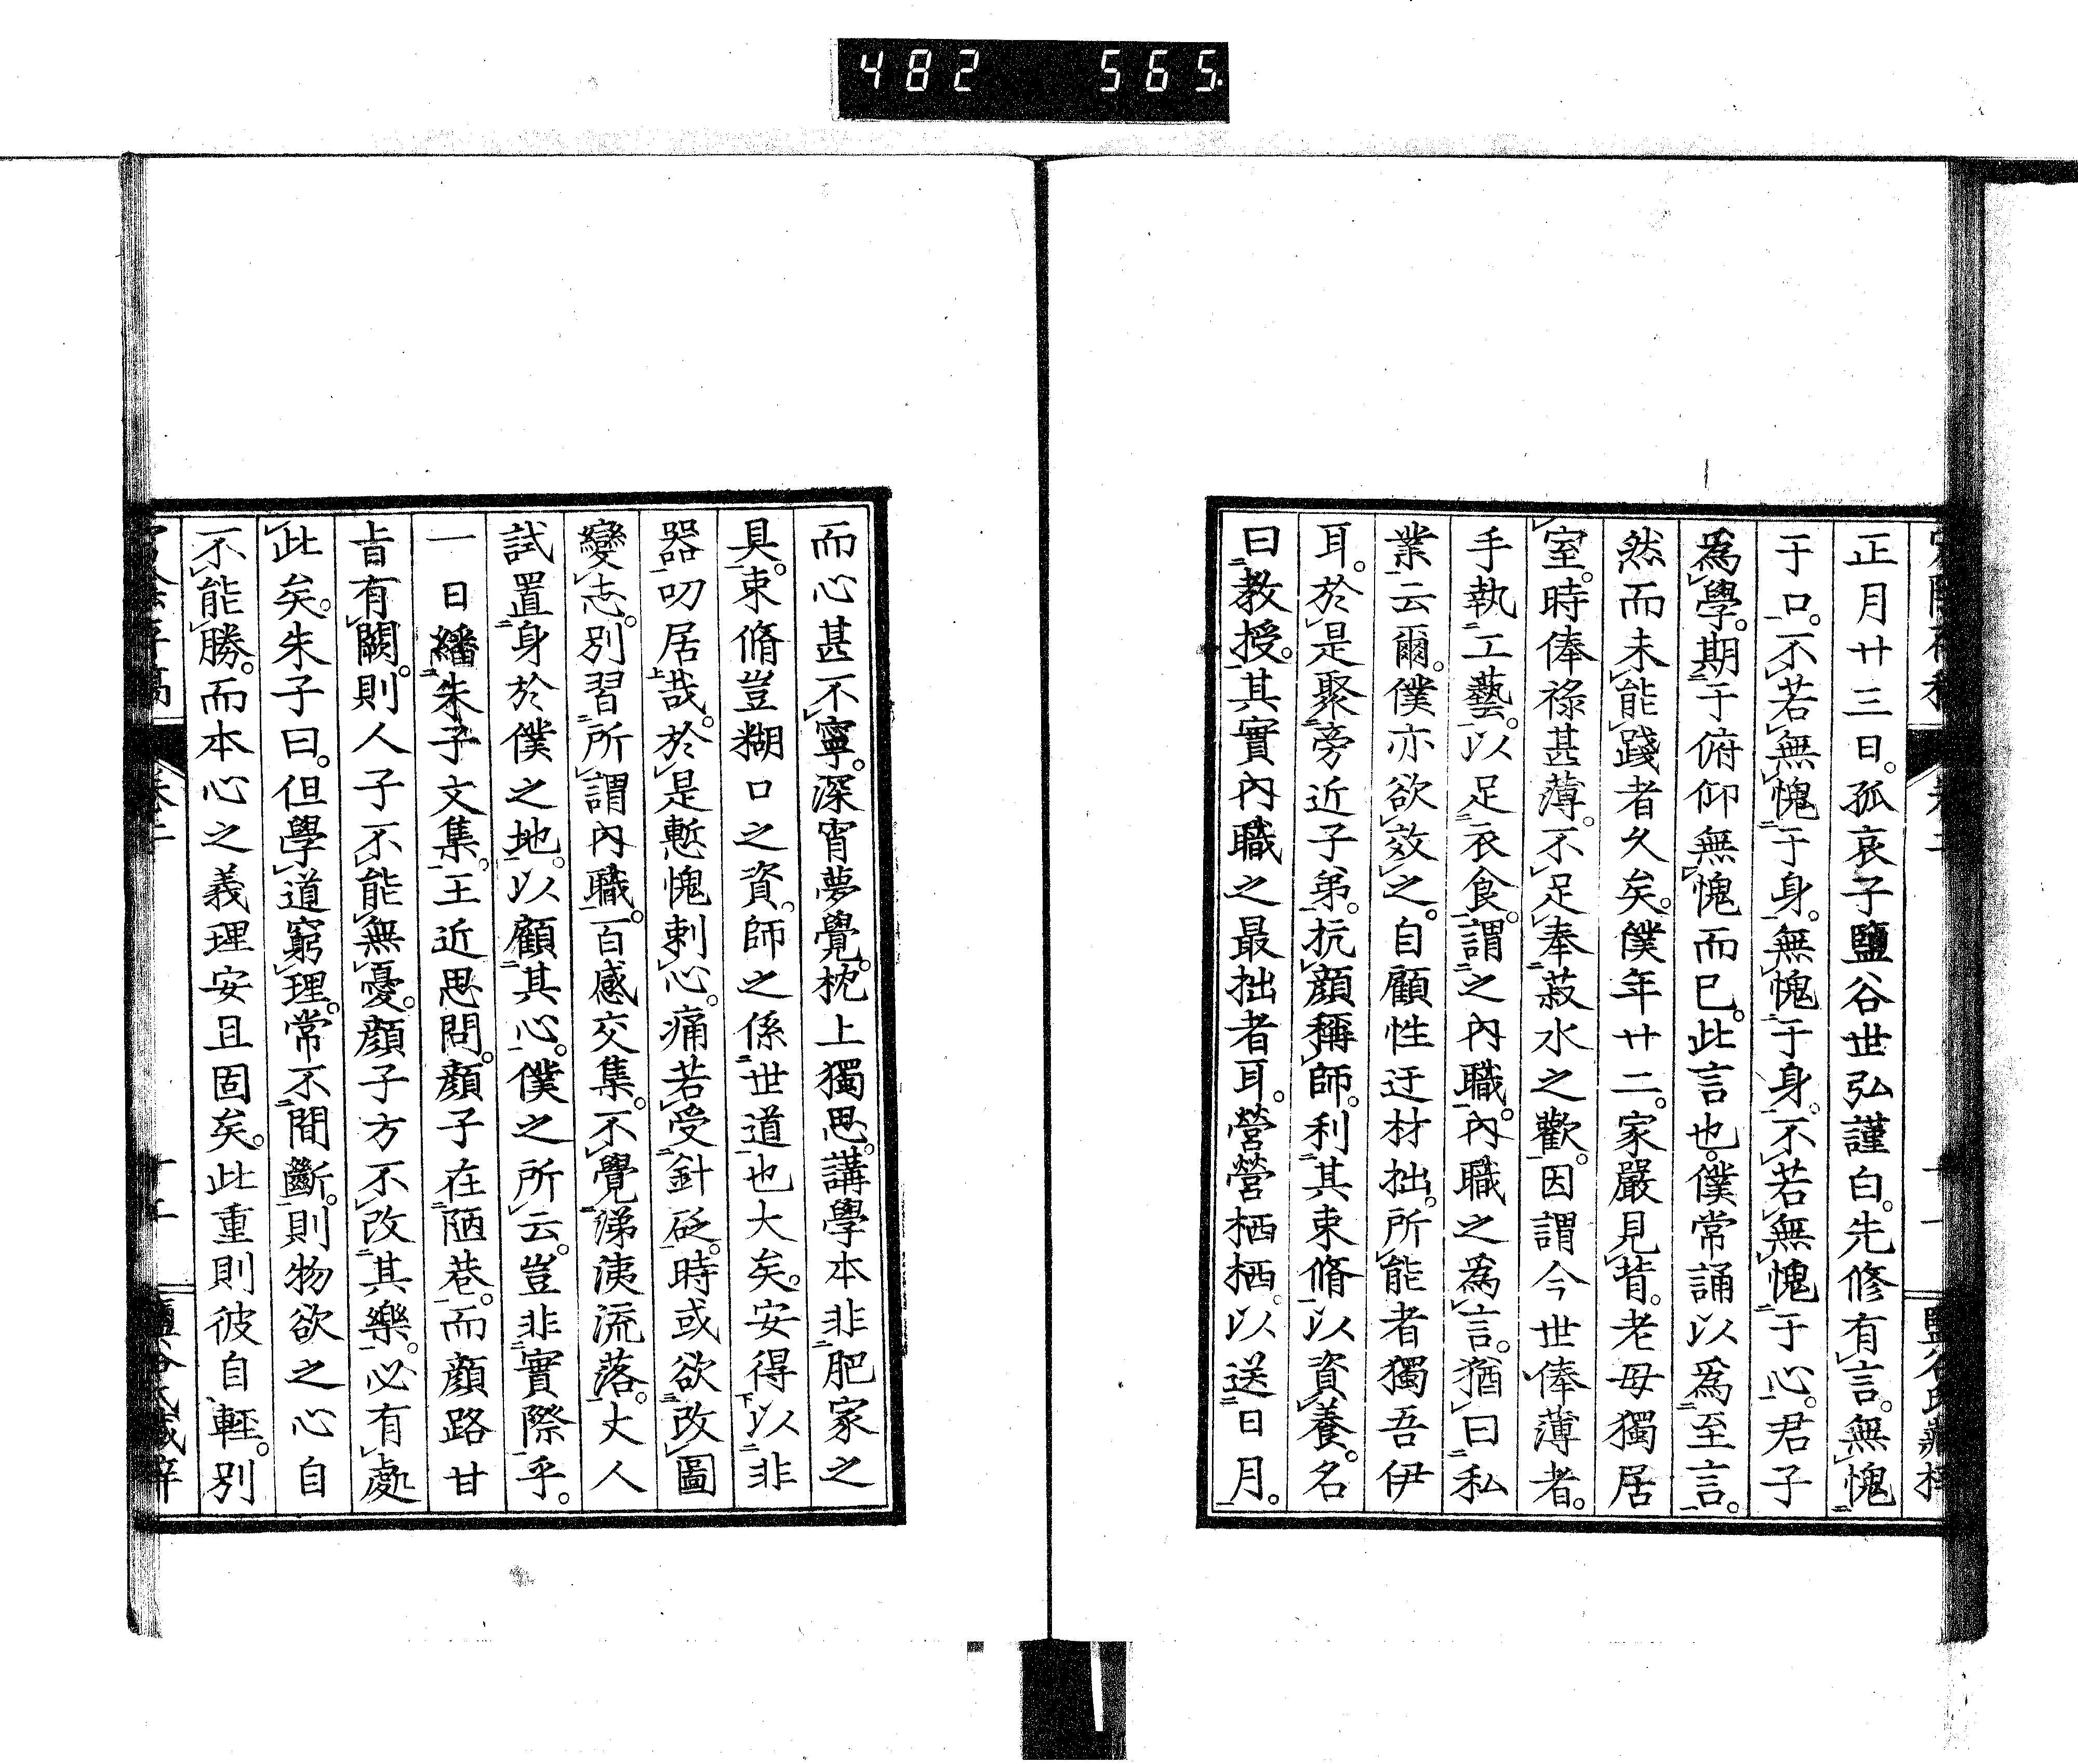 482 565
正月廿三日。孤哀子鹽谷世弘謹白。先修有言。無愧
于口。不若無愧于身。無愧于身。不若無愧于心。君子
爲學。期于俯仰無愧而已。此言也。僕常誦以爲至言。
然而未能踐者久矣。僕年廿二。家嚴見背。老母獨居
室。時俸祿甚薄。不足奉菽水之歡。因謂今世俸薄者。
手執工藝。以足衣食。謂之內職。內職之爲言。猶曰私
業云爾。僕亦欲效之。自顧性迂材拙。所能者獨吾伊
耳。於是聚旁近子弟。抗顏稱師。利其束脩以資養。名
曰教授。其實內職之最拙者耳。營營栖栖。以送日月。
而心甚不寧。深宵夢覺。枕上獨思。講學本非肥家之
具。束脩豈糊口之資。師之係世道也大矣。安得以非
器叨居哉。於是慙愧刺心。痛若受針砭。時或欲改圖
變志。別習所謂內職。百感交集。不覺涕洟流落。丈人
試置身於僕之地。以顧其心。僕之所云。豈非實際乎。
一日繙朱子文集。王近思問。顏子在陋巷。而顏路甘
旨有闕。則人子不能無憂。顏子方不改其樂。必有處
此矣。朱子曰。但學道窮理。常不間斷。則物欲之心自
不能勝。而本心之義理安且固矣。此重則彼自輕。別